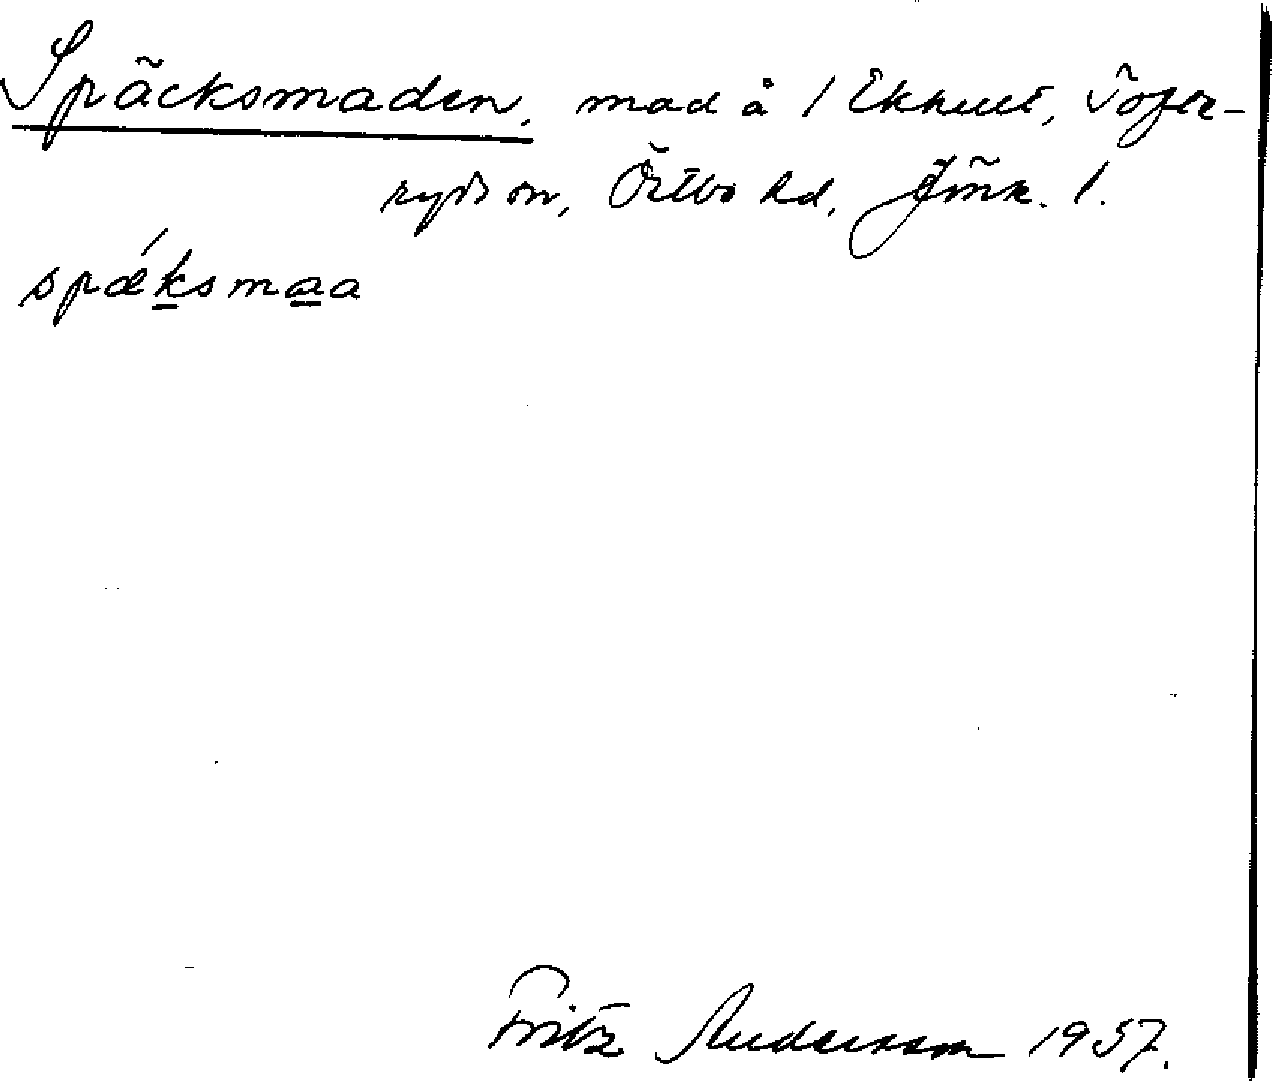 Späcksmaden, mad å 1 Ekhult, Tofte-
ryds sn, Östbo hd, Jönk. l.
spǽksmaa
Fritz Andersson 1957.